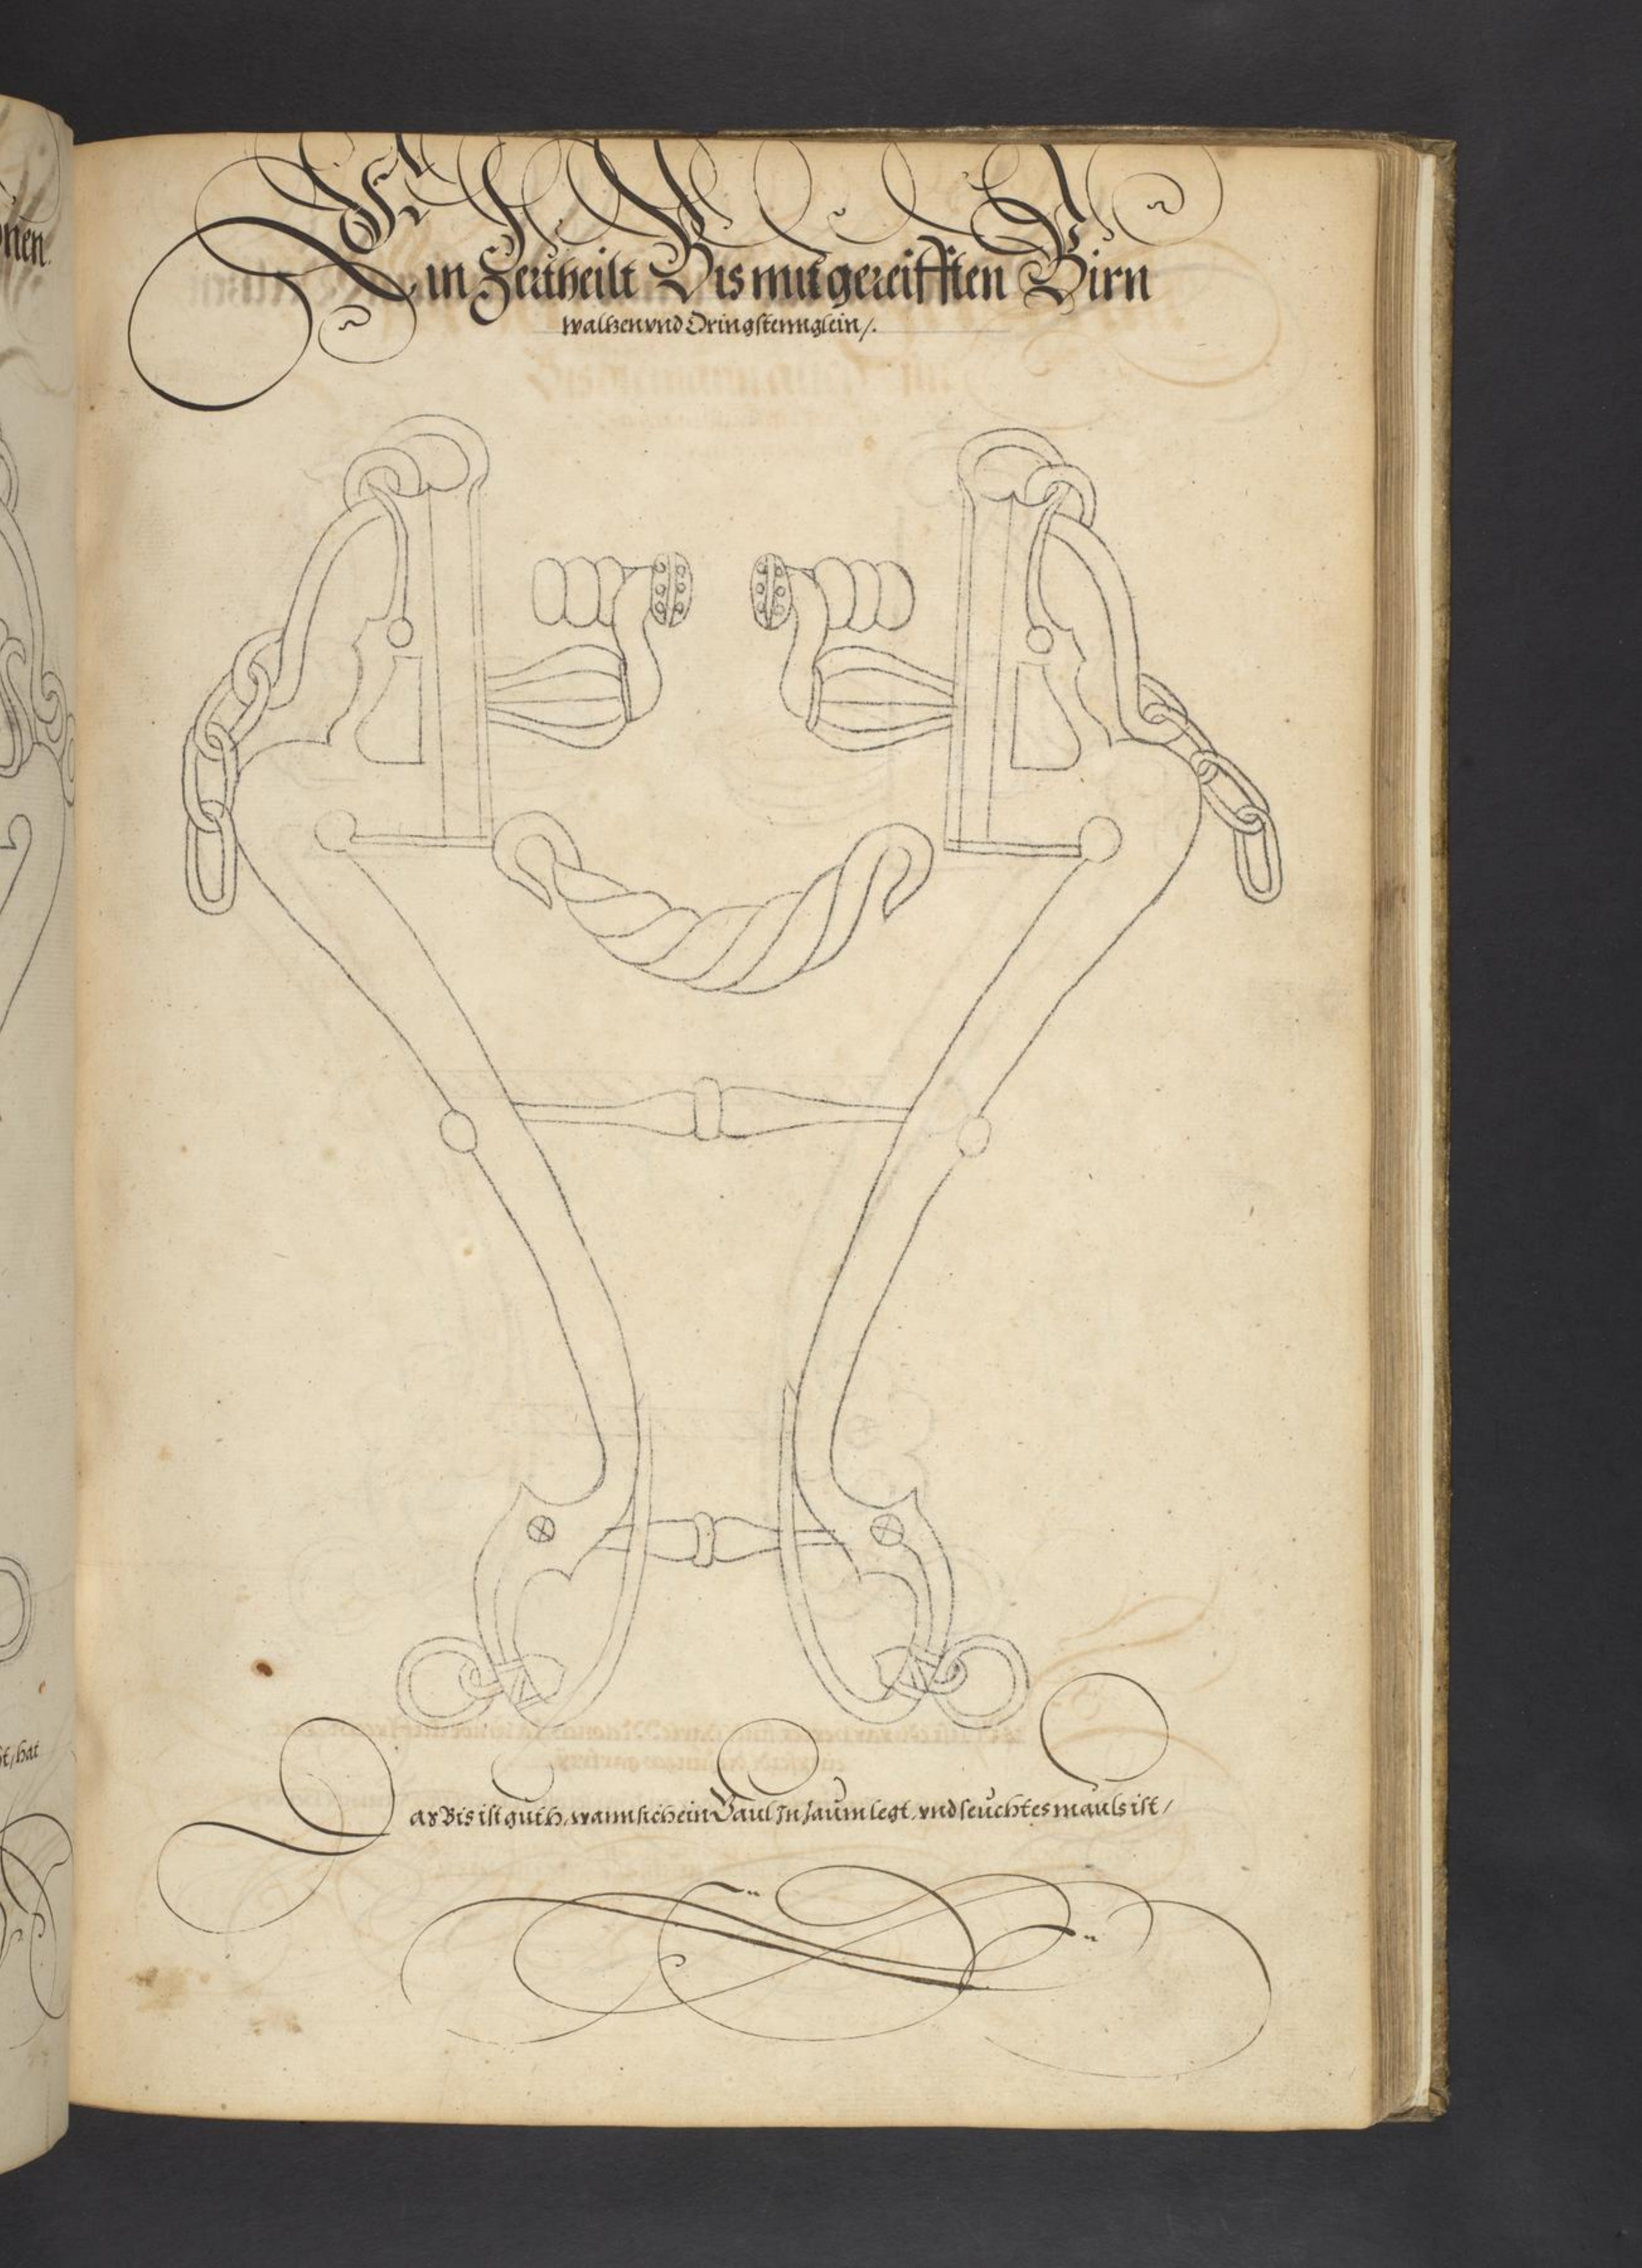 Ein Zertheilt Bis mit gereifften Birn
waltzen vnd Oring stennglein /.
Das Bis ist guth, wann sich ein Gaul In Zaum legt, vnd feuchtes mauls ist /
nen.
st / hat